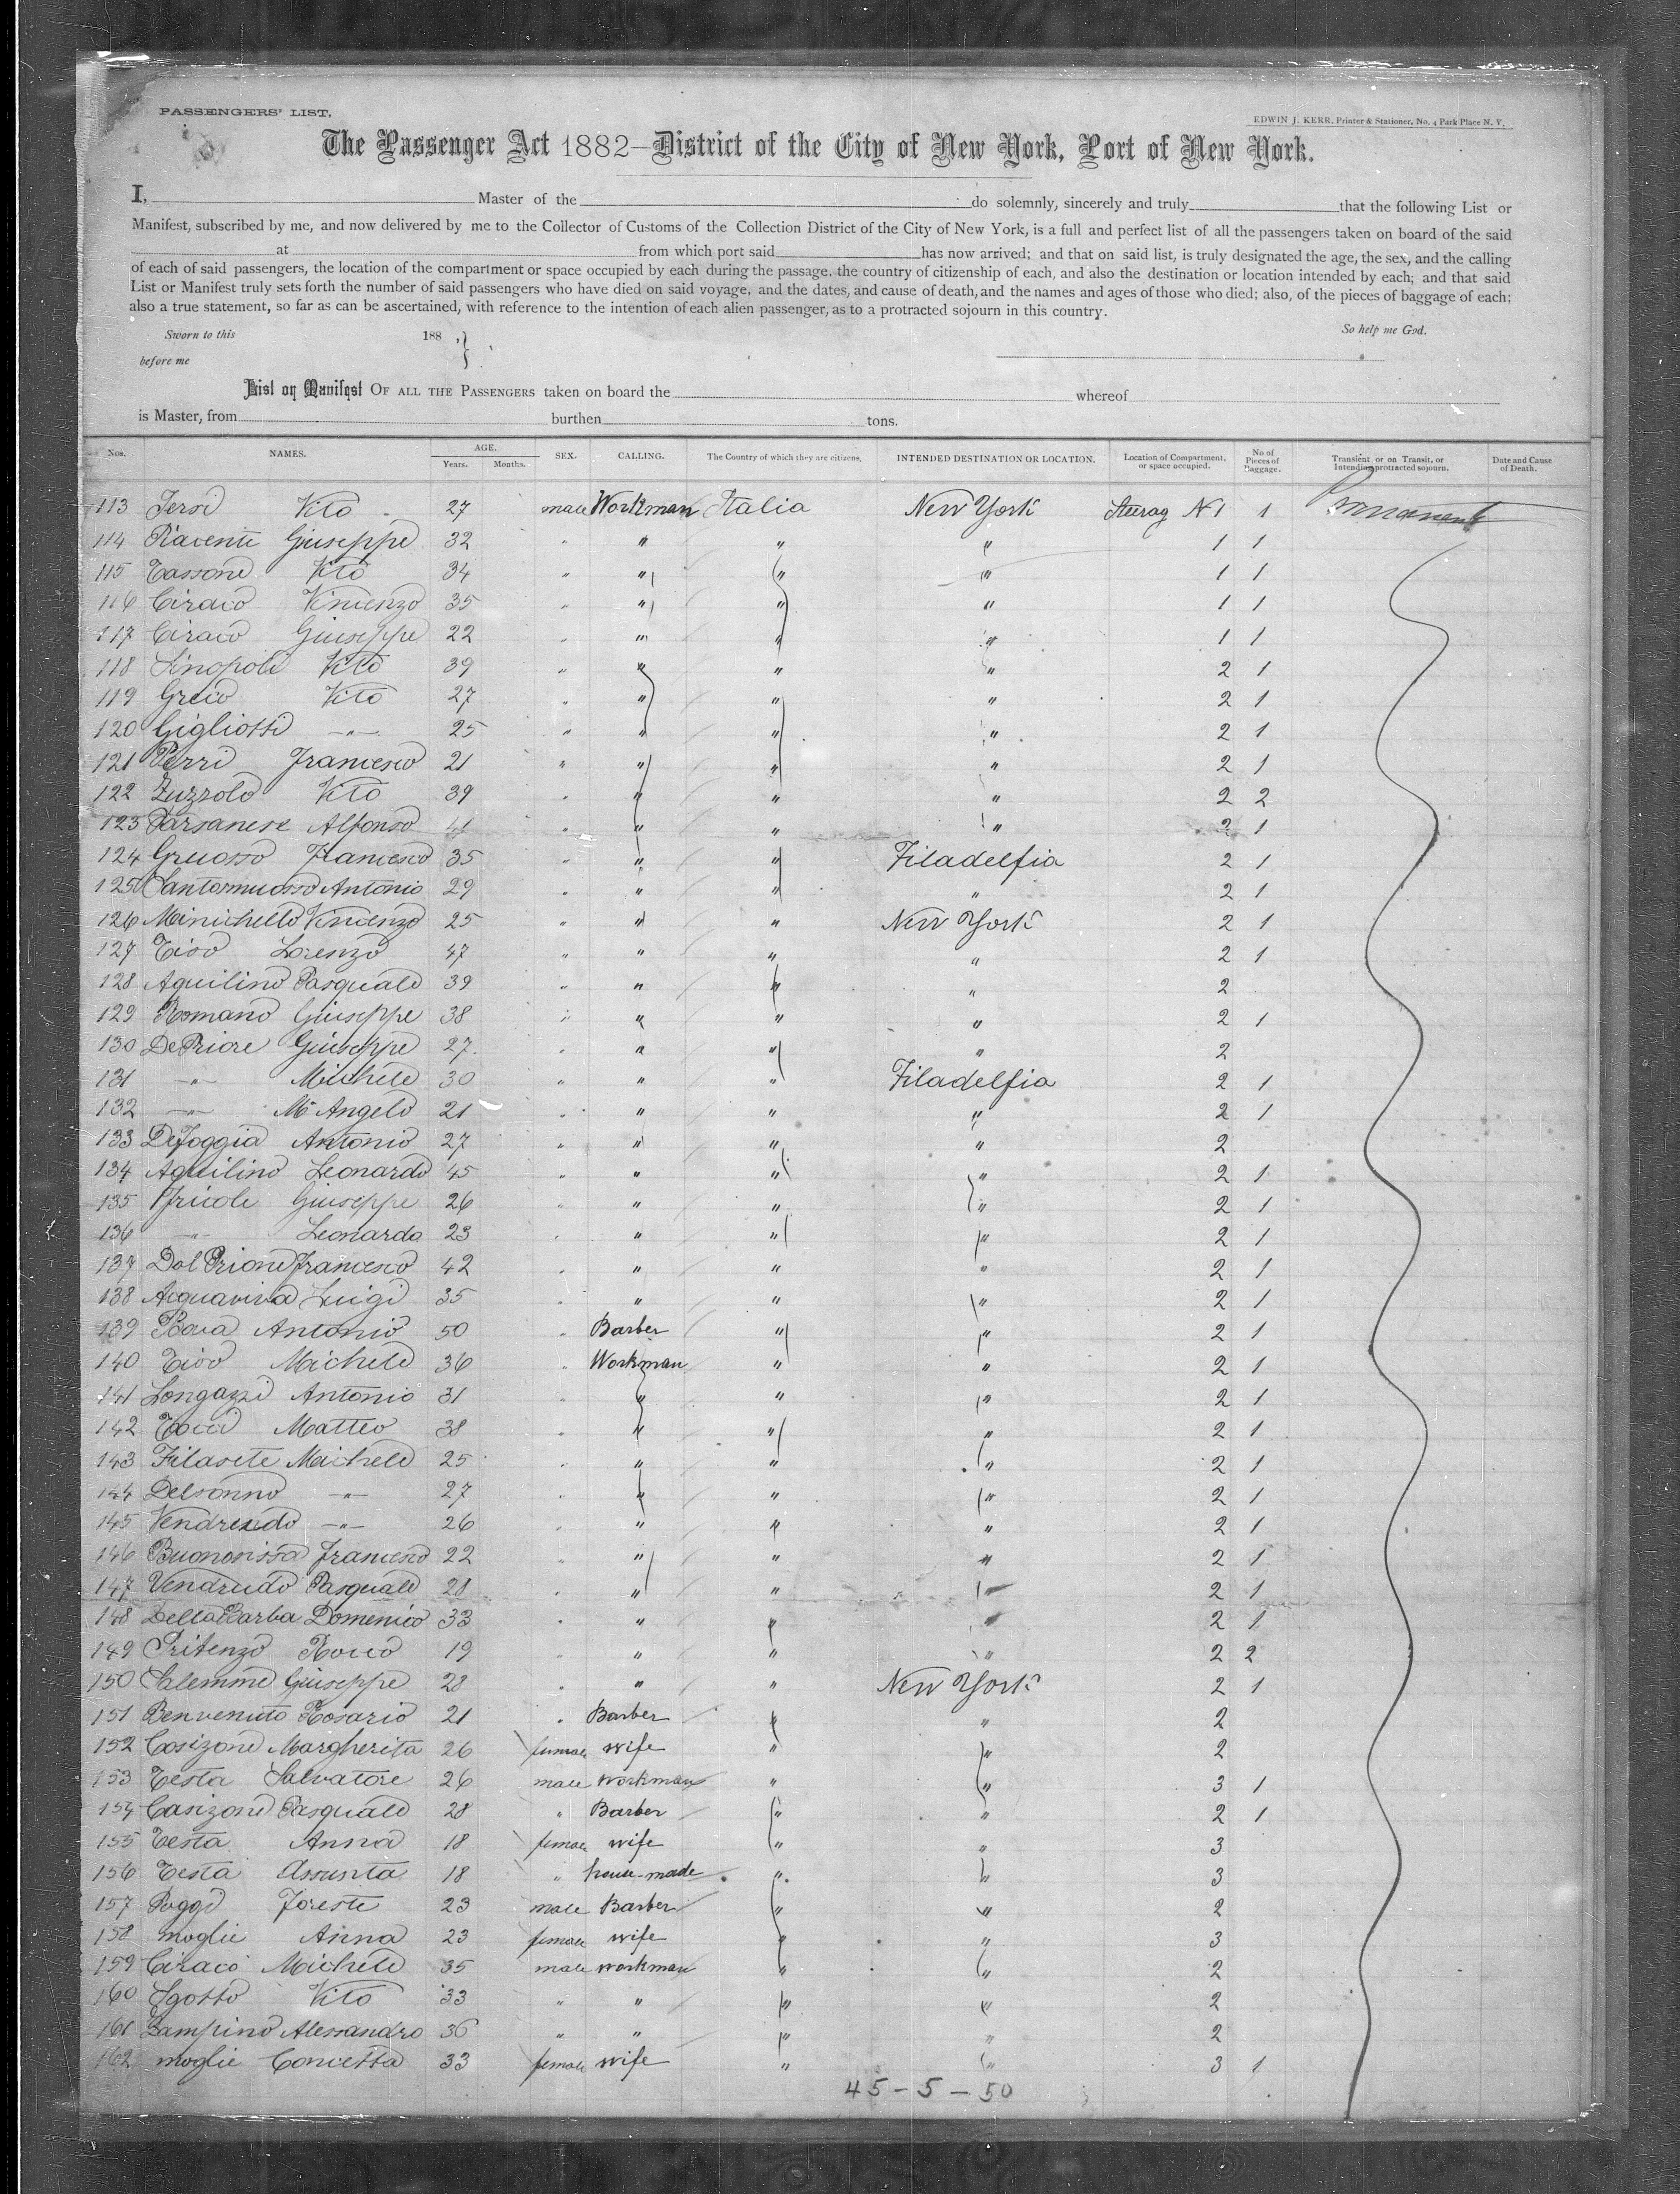 PASSENGERS' LIST.
EDWIN J. KERR, Printer & Stationer, No. 4 Park Place N. Y.
The Passenger Act 1882—District of the City of New York, Port of New York.
I, Master of the do solemnly, sincerely and truly that the following List or
Manifest, subscribed by me, and now delivered by me to the Collector of Customs of the Collection District of the City of New York, is a full and perfect list of all the passengers taken on board of the said
at from which port said has now arrived; and that on said list, is truly designated the age, the sex, and the calling
of each of said passengers, the location of the compartment or space occupied by each during the passage, the country of citizenship of each, and also the destination or location intended by each; and that said
List or Manifest truly sets forth the number of said passengers who have died on said voyage, and the dates, and cause of death, and the names and ages of those who died; also, of the pieces of baggage of each;
also a true statement, so far as can be ascertained, with reference to the intention of each alien passenger, as to a protracted sojourn in this country.
Sworn to this 188 , } So help me God.
before me
List or Manifest OF ALL THE PASSENGERS taken on board the whereof
is Master, from burthen tons.
Nos. NAMES. AGE. Years. Months. SEX. CALLING. The Country of which they are citizens. INTENDED DESTINATION OR LOCATION. Location of Compartment, or space occupied. No of Pieces of Baggage. Transient or on Transit, or Intending protracted sojourn. Date and Cause of Death.
113 Tersi Vito 27 male Workman Italia New York Steerag N 1 1
114 Piacenti Giuseppe 32 " " " " 1 1
115 Tassone Vito 34 " " " " 1 1
116 Ciraco Vincenzo 35 " " " " 1 1
117 Ciraco Giuseppe 22 " " " " 1 1
118 Sinopoli Vito 39 " " " " 2 1
119 Greco Vito 27 " " " " 2 1
120 Gigliotti " 25 " " " " 2 1
121 Perri Francesco 21 " " " " 2 1
122 Zuzzolo Vito 39 " " " " 2 2
123 Parsanese Alfonso 41 " " " " 2 1
124 Gruosso Francesco 35 " " " Filadelfia 2 1
125 Santomuosso Antonio 29 " " " " 2 1
126 Minichello Vincenzo 25 " " " New York 2 1
127 Tiso Lorenzo 47 " " " " 2 1
128 Aquilino Pasquale 39 " " " " 2
129 Romano Giuseppe 38 " " " " 2 1
130 DePriore Giuseppe 27 " " " " 2
131 " Michele 30 " " " Filadelfia 2 1
132 " M Angelo 21 " " " " 2 1
133 DeFoggia Antonio 27 " " " " 2
134 Aquilino Leonardo 45 " " " " 2 1
135 Giuseppe 26 " " " " 2 1
136 " Leonardo 23 " " " " 2 1
137 Dal Prione Francesco 42 " " " " 2 1
138 Acquaviva Luigi 35 " " " " 2 1
139 Antonio 50 " Barber " " 2 1
140 Tiso Michele 36 " Workman " " 2 1
141 Longazzi Antonio 31 " " " 2 1
142 Tocci Matteo 38 " " " " 2 1
143 Filasete Michele 25 " " " " 2 1
144 Delsonno " 27 " " " " 2 1
145 " 26 " " " " 2 1
146 Francesco 22 " " " " 2 1
147 Pasquale 28 " " " " 2 1
148 Della Barba Domenico 33 " " " " 2 1
149 Pritenzo Rocco 19 " " " " 2 2
150 Salemme Giuseppe 28 " " " New York 2 1
151 Benvenuto Rosario 21 " Barber " " 2
152 Cosizone Margherita 26 female wife " " 2
153 Testa Salvatore 26 male workman " " 3 1
154 Casizone Pasquale 28 " Barber " " 2 1
155 Testa Anna 18 female wife " " 3
156 Testa Assunta 18 " house-made " " 3
157 Poggi Foreste 23 male Barber " " 2
158 moglie Anna 23 female wife " " 3
159 Ciraco Michele 35 male workman " " 2
160 Sgotto Vito 33 " " " " 2
161 Zampino Alessandro 36 " " " " 2
162 moglie Concetta 33 female wife " " 3 1
45 - 5 - 50